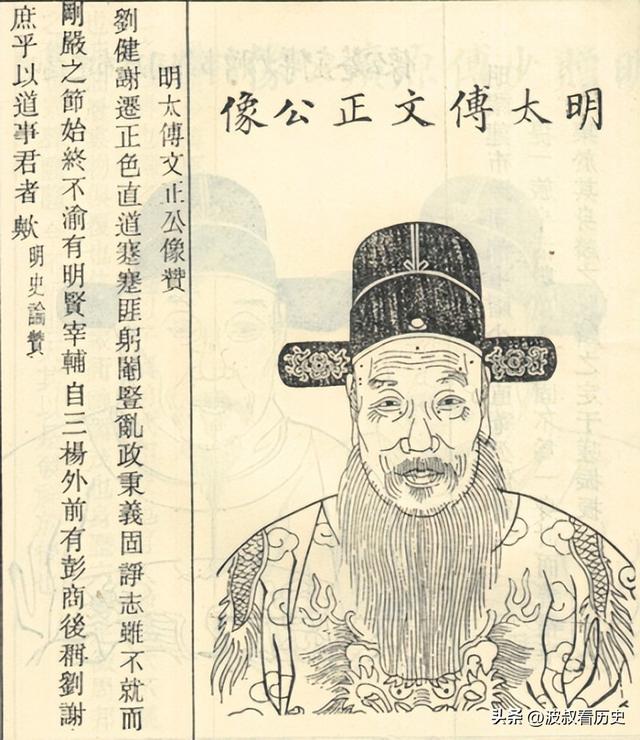 明太傅文正公像
明太傅文正公像贊
劉健謝遷正色直道蹇蹇匪躬閹豎亂政秉義固諍志雖不就而
剛嚴之節始終不渝有明賢宰輔自三楊外前有彭商後稱劉謝
庶乎以道事君者歟 明史論贊
头条 @波叔看历史